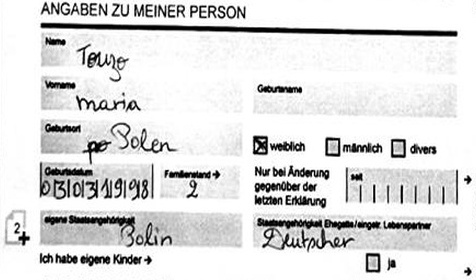 ANGABEN ZU MEINER PERSON
Name
Tonzo
Vorname
maria
Geburtsname
Geburtsort
Polen
weiblich
männlich
divers
Geburtsdatum
03031998
Familienstand →
2
Nur bei Änderung
gegenüber der
letzten Erklärung
seit
→
2
+
eigene Staatsangehörigkeit
Polin
Staatsangehörigkeit Ehegatte/eingetr. Lebenspartner
Deutscher
Ich habe eigene Kinder →
ja
→